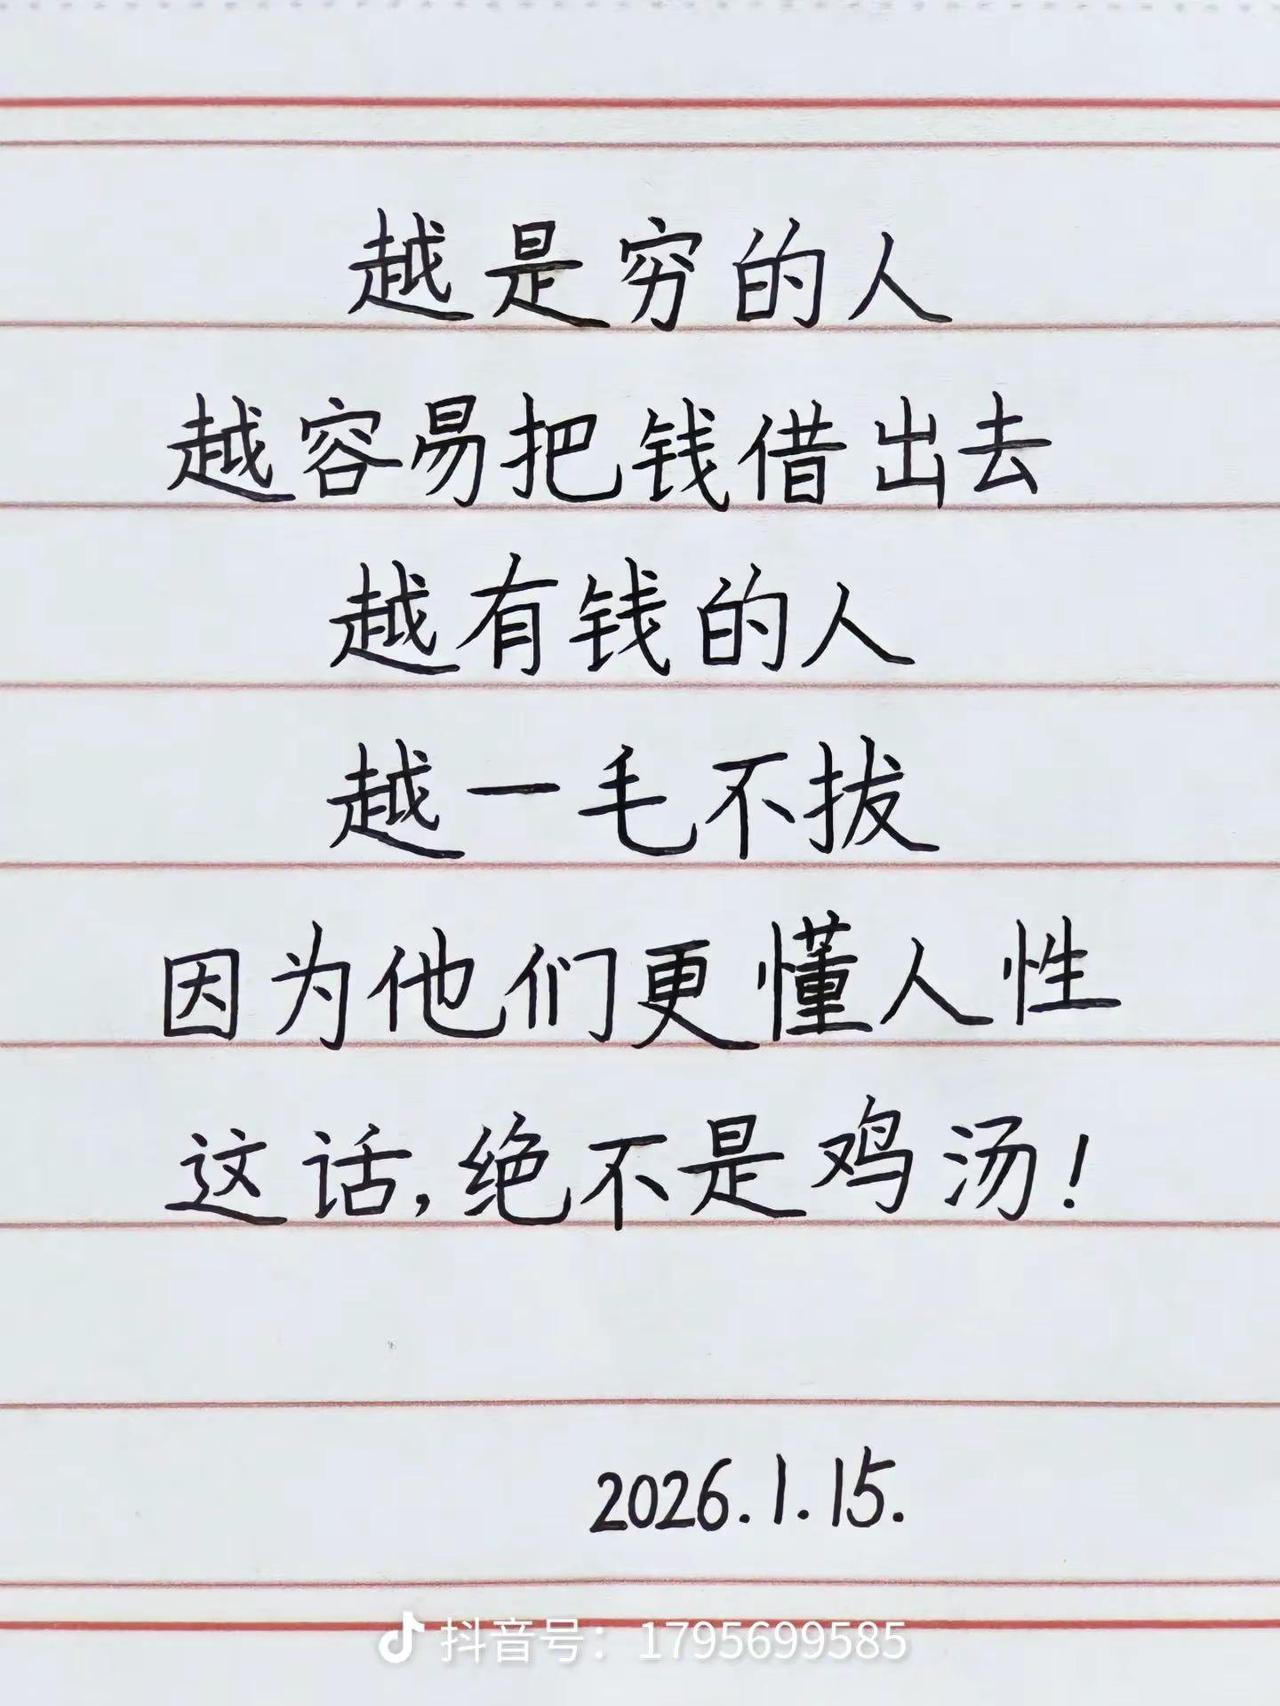 越是穷的人
越容易把钱借出去
越有钱的人
越一毛不拔
因为他们更懂人性
这话,绝不是鸡汤!
2026.1.15.
抖音号：1795699585